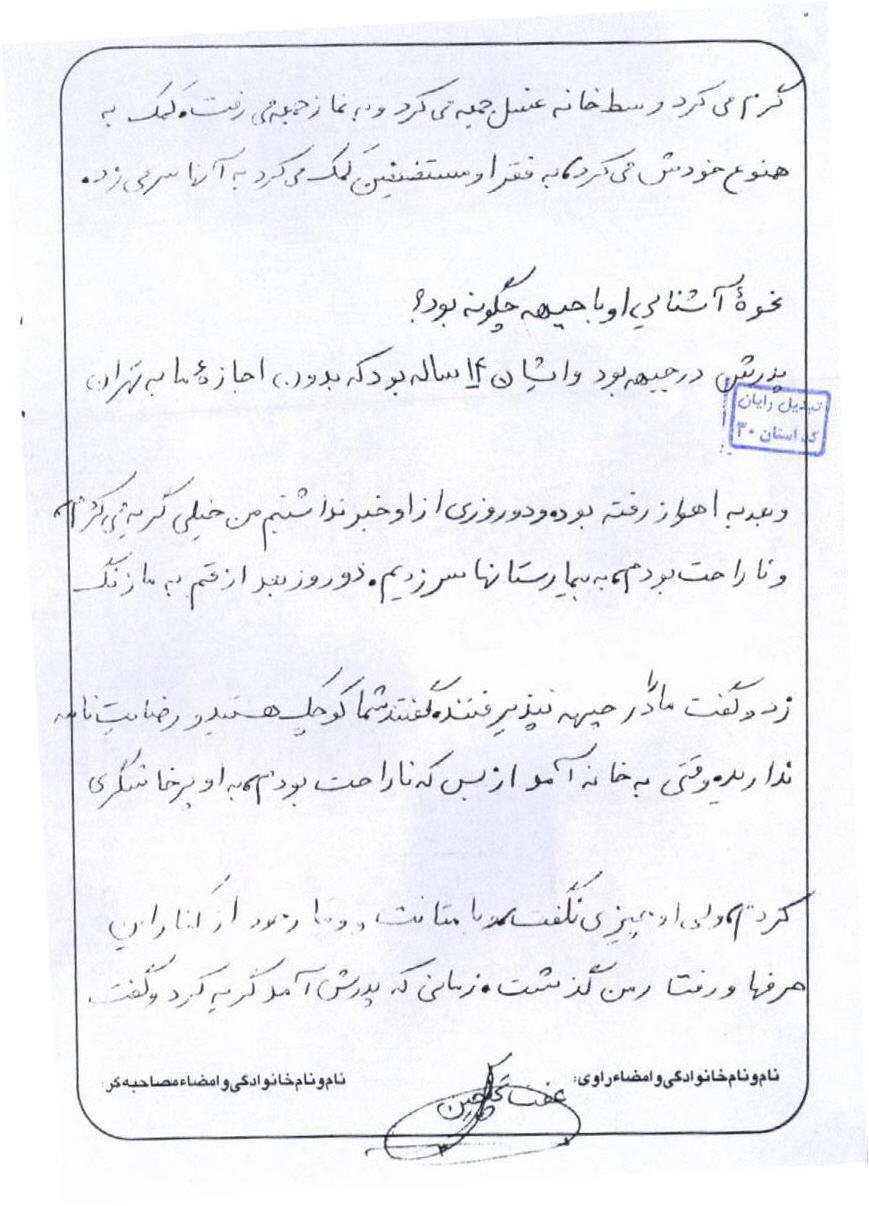 گرم می کرد وسط خانه غسل جمعه می کرد و به نماز جمعه می رفت، کمک به
همنوع خودش می کرد، به فقرا و مستضعفین کمک می کرد به آنها سر می زد.
نحوهٔ آشنایی او با جبهه چگونه بود؟
پدرش در جبهه بود و ایشان ۱۴ ساله بود که بدون اجازهٔ ما به تهران
تبدیل رایان
کد استان ۳۰
و بعد به اهواز رفته بود، دو روزی از او خبر نداشتیم من خیلی گریه می کردم،
و ناراحت بودم، به بیمارستانها سر زدیم. دو روز بعد از قم به ما زنگ
زد و گفت ما را در جبهه نپذیرفتند، گفتند شما کوچک هستید و رضایت نامه
ندارید، وقتی به خانه آمد از بس که ناراحت بودم، به او پرخاشگری
کردم، ولی او چیزی نگفت، با متانت و وقار خود از کنار این
حرفها و رفتار من گذشت. زمانی که پدرش آمد گریه کرد و گفت
نام و نام خانوادگی و امضاء راوی: عفت گلچین
نام و نام خانوادگی و امضاء مصاحبه گر: